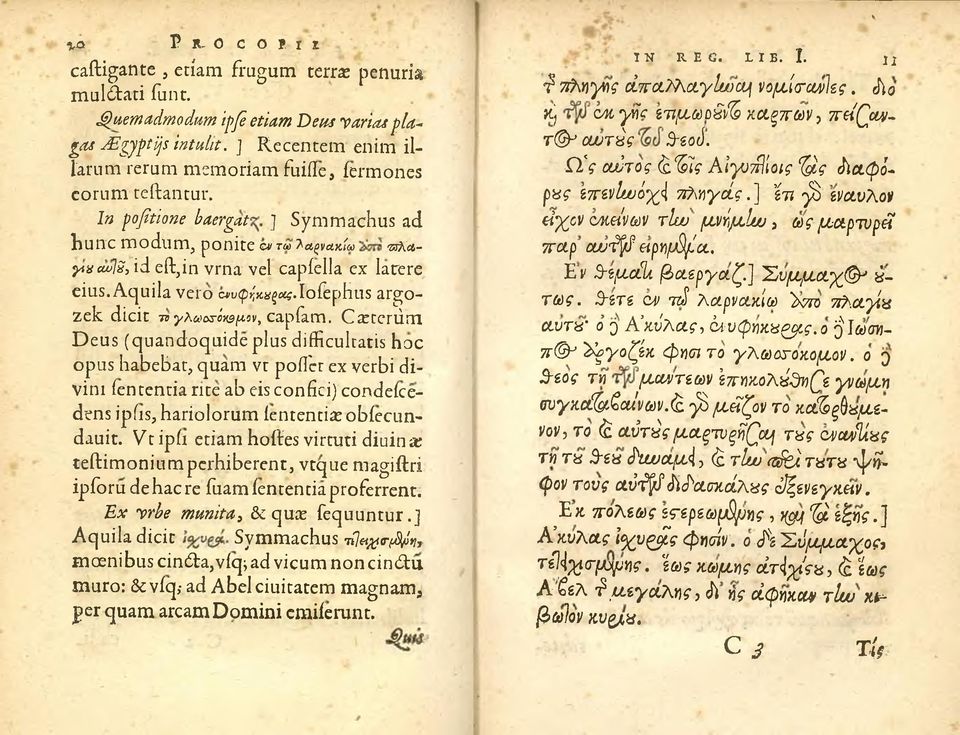 20 PROCOPII
caſtigante, etiam frugum terræ penuria
mulctati ſunt.
Quemadmodum ipſe etiam Deus varias pla-
gas Ægyptijs intulit. ] Recentem enim il-
larum rerum memoriam fuiſſe, ſermones
eorum teſtantur.
In poſitione baergatz. ] Symmachus ad
hunc modum, ponite ἐν τῷ λαρνακίῳ ἀπὸ πλα-
γίου αὐτοῦ, id eſt, in vrna vel capſella ex latere
eius. Aquila verò ἐνυφήκουρας. Ioſephus argo-
zek dicit τὸ γλωσσόκομον, capſam. Cæterùm
Deus (quandoquidẽ plus difficultatis hoc
opus habebat, quàm vt poſſet ex verbi di-
vini ſententia ritè ab eis confici) condeſcẽ-
dens ipſis, hariolorum ſententiæ obſecun-
dauit. Vt ipſi etiam hoſtes virtuti diuinæ
teſtimonium perhiberent, vtque magiſtri
ipſorũ de hac re ſuam ſententiã proferrent.
Ex vrbe munita, & quæ ſequuntur. ]
Aquila dicit ἰσχυρᾶς. Symmachus τετειχισμένης,
mœnibus cincta, vſq; ad vicum non cinctũ
muro: & vſq; ad Abel ciuitatem magnam,
per quam arcam Domini emiſerunt.
Quis
IN REG. LIB. I. 11
τ πληγῆς ἀπαλλαγῆναι νομίσαντες. διὸ
καὶ τῶν ἐκ γῆς ἐπιμωροῦντο καρπῶν, πείσαν-
τος αὐτοὺς τοῦ θεοῦ.
Ὡς αὐτὸς καὶ τοῖς Αἰγυπτίοις τὰς διαφό-
ρους ἐπενηνόχει πληγάς. ] ἔτι γὰρ ἔναυλον
εἶχον ἐκείνων τὴν μνήμην, ὡς μαρτυρεῖ
παρ' αὐτῶν εἰρημένα.
Ἐν θέματι βαεργάζ. ] Σύμμαχος οὕ-
τως. θέτε ἐν τῷ λαρνακίῳ ἀπὸ πλαγίου
αὐτοῦ· ὁ δὲ Ἀκύλας, ἐνυφήκουρας. ὁ δὲ Ἰώση-
πος ἀργοζὲκ φησι τὸ γλωσσόκομον. ὁ δὲ
θεὸς τῇ τῶν μαντέων ἐπηκολούθησε γνώμῃ
συγκαταβαίνων. καὶ γὰρ μεῖζον τὸ κατορθούμε-
νον, τὸ καὶ αὐτοὺς μαρτυρῆσαι τοὺς ἐναντίους
τῇ τοῦ θεοῦ δυνάμει, καὶ τὴν περὶ τούτου ψῆ-
φον τοὺς αὐτῶν διδασκάλους ἐξενεγκεῖν.
Ἐκ πόλεως ἐστερεωμένης, καὶ τὰ ἑξῆς. ]
Ἀκύλας ἰσχυρᾶς φησίν. ὁ δὲ Σύμμαχος,
τετειχισμένης. ἕως κώμης ἀτειχίστου, καὶ ἕως
Ἀβελ τ μεγάλης, δι' ἧς ἀφῆκαν τὴν κι-
βωτὸν κυρίου.
C 3 Τίς